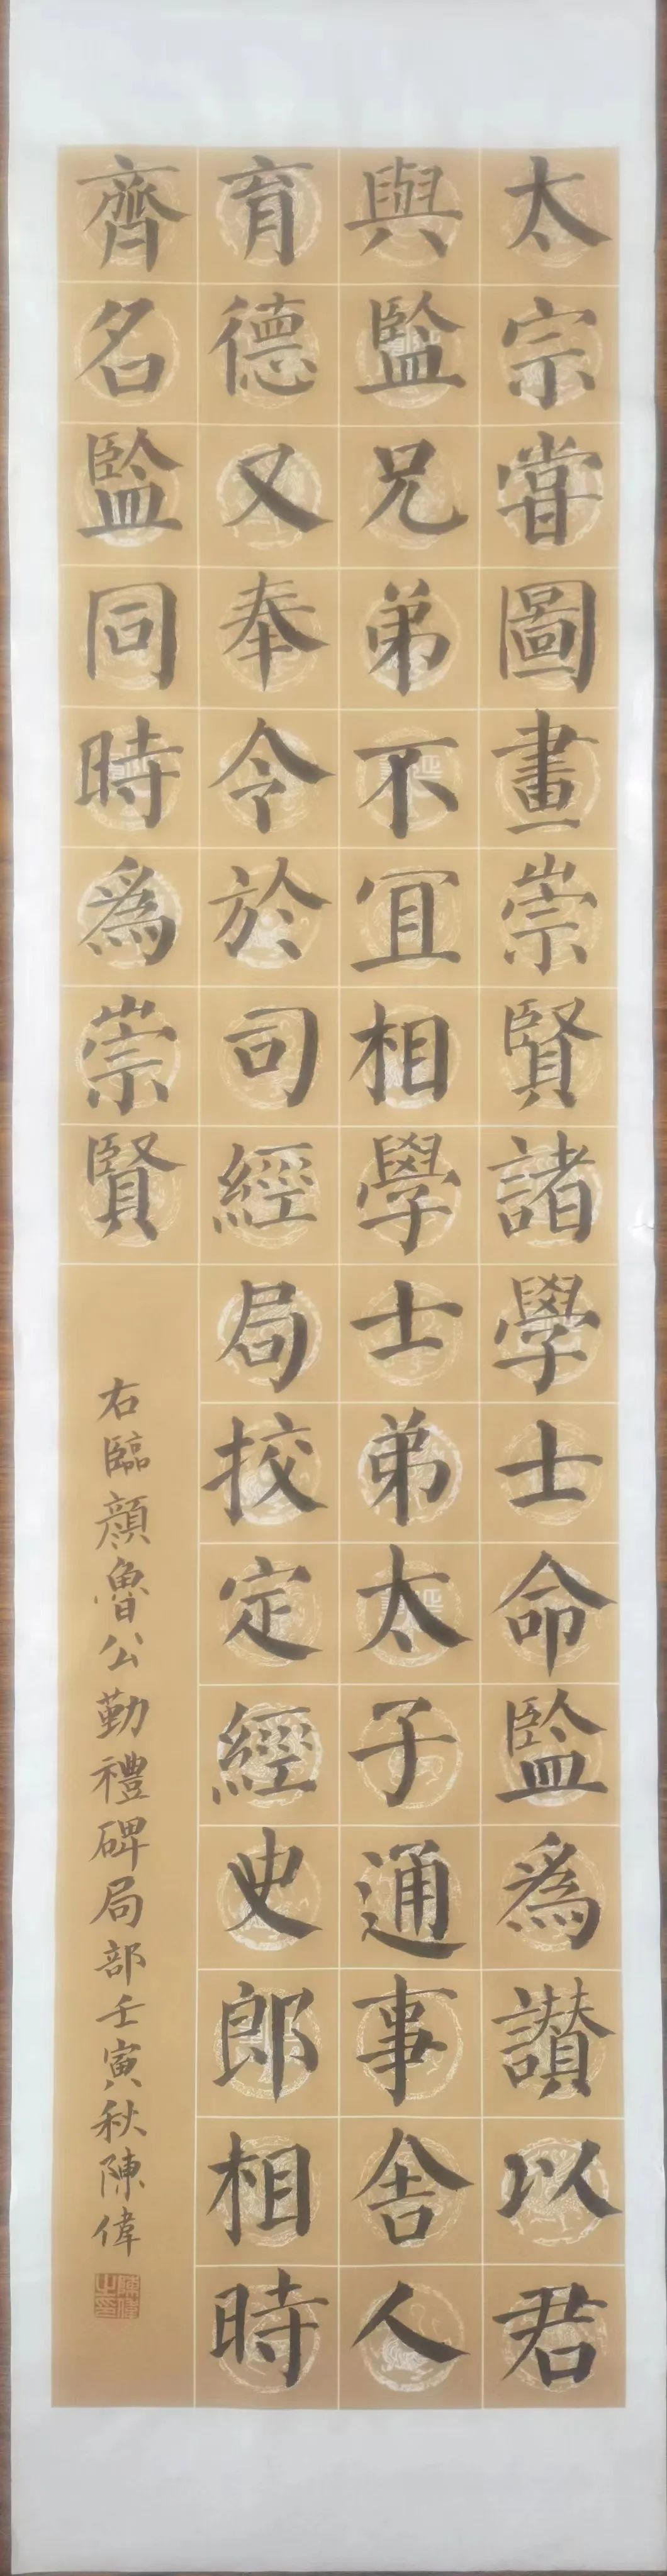 太宗甞圖畫崇賢諸學士命監為讃以君
與監兄弟不宜相學士弟太子通事舍人
育德又奉令於司經局挍定經史郎相時
齊名監同時為崇賢
右臨顏魯公勤禮碑局部壬寅秋陳偉